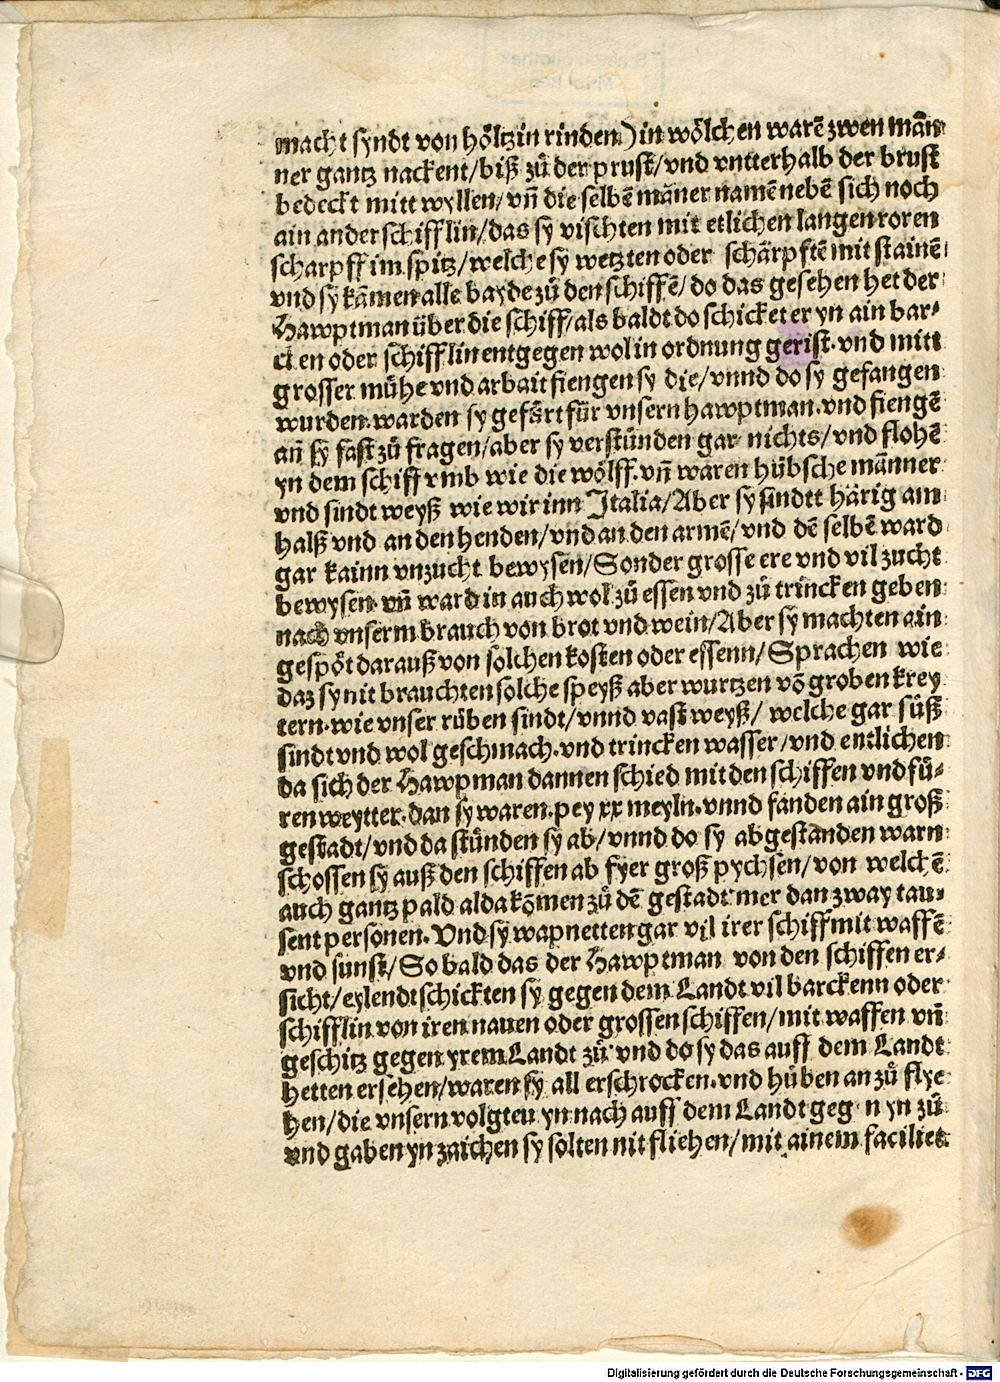 macht syndt von höltzin rinden) in wölchen warē zwen mān
ner gantz nackent/biß zů der prust/vnd vntterhalb der brust
bedeckt mitt wyllen/vn̄ die selbē māner namē nebē sich noch
ain ander schifflin/das sy vischten mit etlichen langen roren
scharpff im spitz/welche sy wetzten oder schärpftē mit stainē
vnd sy kāmen alle bayde zů den schiffē/do das gesehen het der
Hawptman über die schiff/als baldt do schicket er yn ain bar⸗
cken oder schifflin entgegen wol in ordnung gerist. vnd mitt
grosser mühe vnd arbait fiengen sy die/vnnd do sy gefangen
wurden. warden sy gefårt für vnsern hawptman. vnd fiengē
an̄ sy fast zů fragen/aber sy verstůnden gar nichts/vnd flohē
yn dem schiff vmb wie die wölff. vn̄ waren hübsche mānner
vnd sindt weyß wie wir inn Italia/Aber sy sindtt härig am
halß vnd an den henden/vnd an den armē/vnd dē selbē ward
gar kainn vnzucht bewysen/Sonder grosse ere vnd vil zucht
bewysen. vn̄ ward in auch wol zů essen vnd zů trincken geben
nach vnserm brauch von brot vnd wein/Aber sy machten ain
gespöt darauß von solchen kosten oder essenn/Sprachen wie
daz sy nit brauchten solche speyß aber wurtzen vō groben krey
tern. wie vnser rüben sindt/vnnd vast weyß/ welche gar süß
sindt vnd wol geschmach. vnd trincken wasser/vnd entlichen
da sich der Hawpman dannen schied mit den schiffen vnd fů⸗
ren weytter. dan sy waren. pey xx meyln. vnnd fanden ain groß
gestadt/vnd da stůnden sy ab/vnnd do sy abgestanden warn
schossen sy auß den schiffen ab fyer groß pychsen/von welchē
auch gantz pald alda kōmen zů dē gestadt mer dan zway tau⸗
sent personen. Vnd sy wapnetten gar vil irer schiff mit waffē
vnd sunst/So bald das der Hawptman von den schiffen er⸗
sicht/eylendt schickten sy gegen dem Landt vil barckenn oder
schifflin von iren nauen oder grossen schiffen/mit waffen vn̄
geschitz gegen yrem Landt zů. vnd do sy das auff dem Landt
hetten ersehen/waren sy all erschrocken. vnd hůben an zů flye
hen/die vnsern volgteu yn nach auff dem Landt geg n yn zů
vnd gaben yn zaichen sy solten nit fliehen/mit ainem faciliet
Digitalisierung gefördert durch die Deutsche Forschungsgemeinschaft - DFG